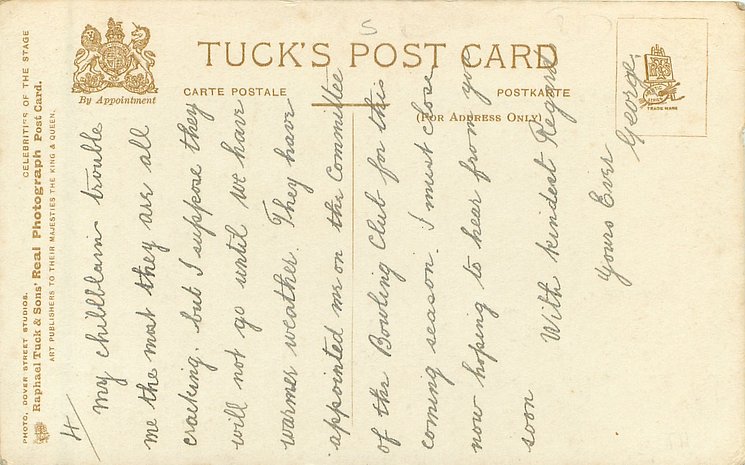 TUCK'S POST CARD
By Appointment
CARTE POSTALE
POSTKARTE
(FOR ADDRESS ONLY)
TRADE MARK
CELEBRITIES OF THE STAGE
Raphael Tuck & Sons' Real Photograph Post Card.
PHOTO, DOVER STREET STUDIOS.
ART PUBLISHERS TO THEIR MAJESTIES THE KING & QUEEN.
5
4/
My chillblain trouble
me the most they are all
cracking. but I suppose they
will not go until we have
warmer weather. They have
appointed me on the Committee
of the Bowling Club for this
coming season. I must close
now hoping to hear from you
soon With kindest Regards
Yours Ever
George.